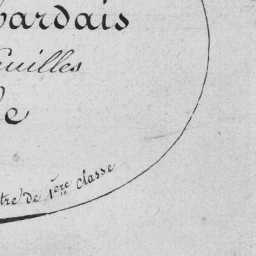 bardais
euilles
e
tre de 1ère classe